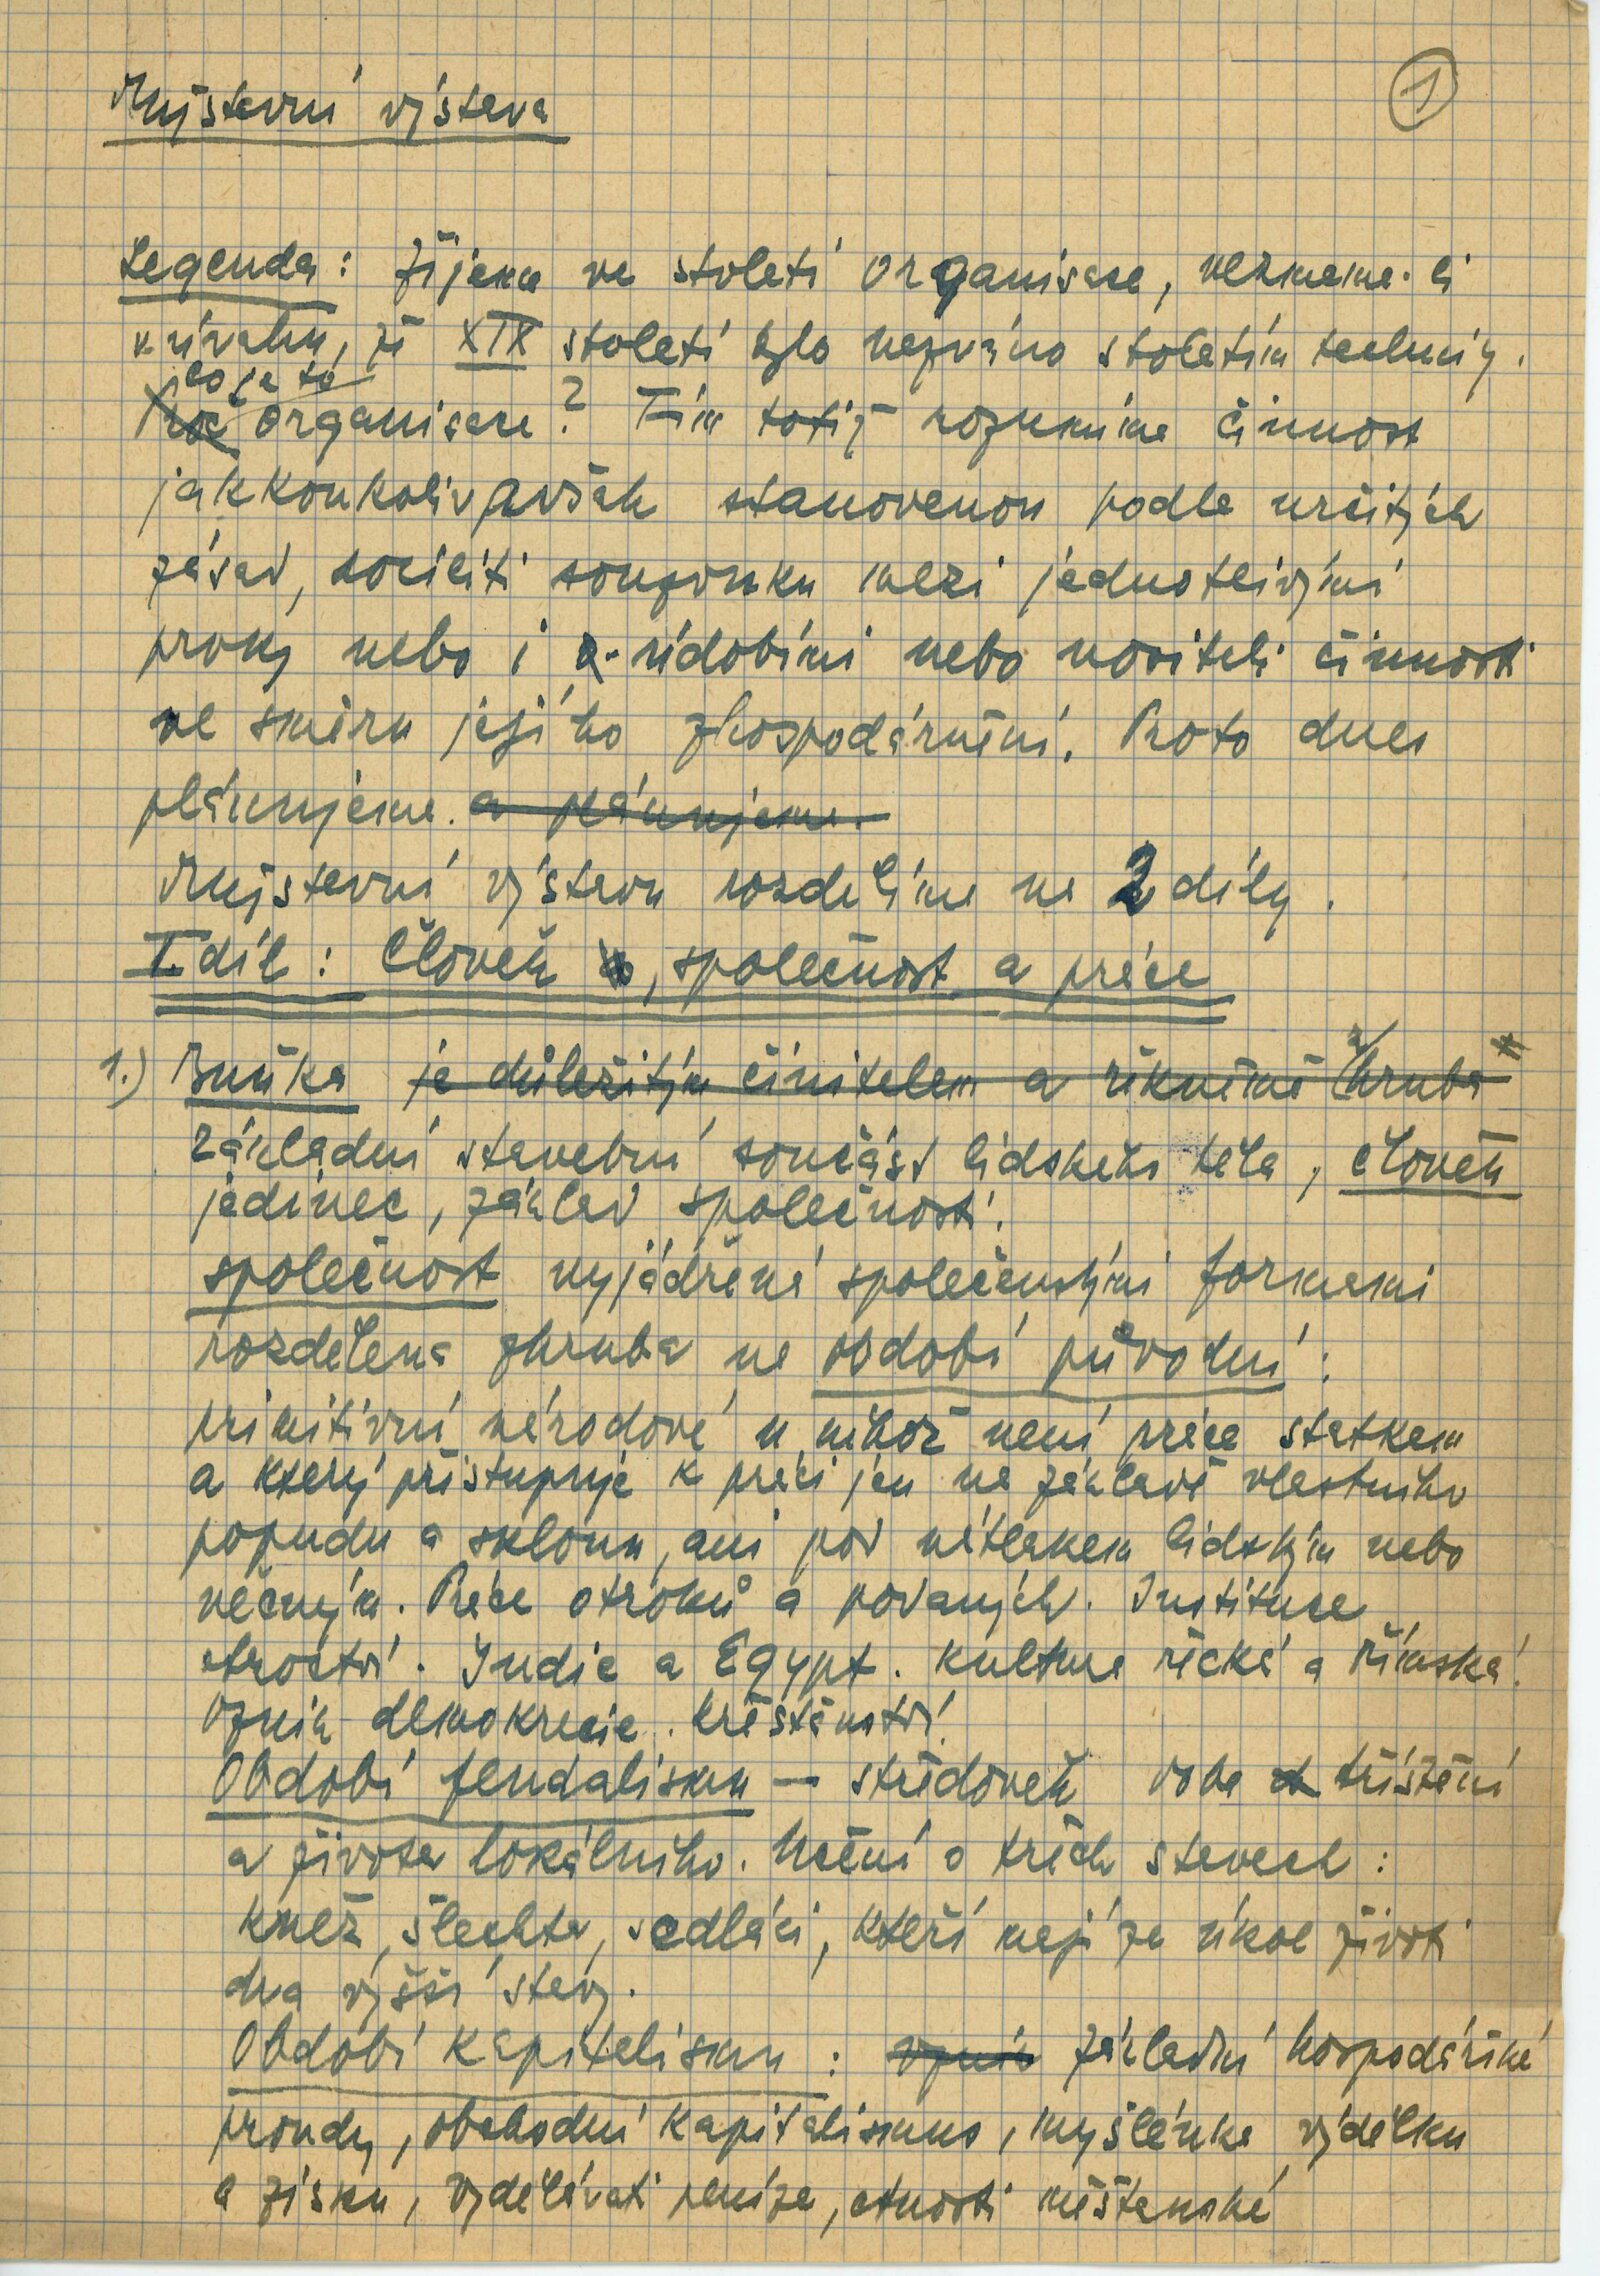 1
Myjstavní výstava
Legenda: Žijeme ve století organisace, vezmeme-li
v úvahu, že XIX století bylo nazváno stoletím techniky.
co je to
Proč organisace? Tím totiž rozumíme činnost
jakkoukoliv avšak stanovenou podle určitých
zásad, docíliti souzvuku mezi jednotlivými
prvky nebo i a údobími nebo nositeli činnosti
ve směru jejího zhospodárnění. Proto dnes
plánujeme. a plánujeme.
výstavu rozdělíme na 2 díly.
I. díl: Člověk, společnost a práce
1.) Buňka je důležitým činitelem a řekněme zhruba
základní stavební součást lidského těla, člověk
jedinec, základ společnosti.
společnost vyjádřená společenskými formami
rozdělena zhruba na období původní:
primitivní národové u nichž není práce statkem
a který přistupuje k práci jen na základě vlastního
popudu a sklonu, ani pod nátlakem lidským nebo
věcným. Práce otroků a poddaných. Instituce
otroctví. Indie a Egypt. Kultura řecká a římská.
Vznik demokracie. Křesťanství.
Období feudalismu — středověk doba tříštění
a života lokálního. Učení o třech stavech:
kněz, šlechta, sedláci, kteří mají za úkol živiti
dva vyšší stavy.
Období kapitalismu: vznik základní hospodářské
proudy, obchodní kapitalismus, myšlenka výdělku
a zisku, vydělávati peníze, ctnosti měšťanské